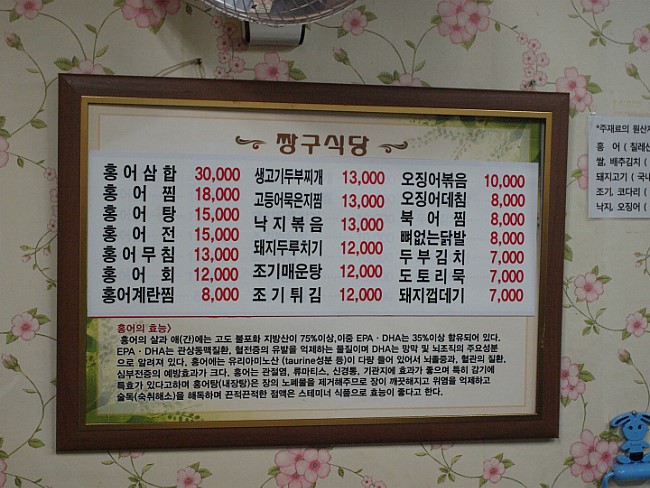 짱구식당
홍어삼합 30,000
홍어찜 18,000
홍어탕 15,000
홍어전 15,000
홍어무침 13,000
홍어회 12,000
홍어계란찜 8,000
생고기두부찌개 13,000
고등어묵은지찜 13,000
낙지볶음 13,000
돼지두루치기 12,000
조기매운탕 12,000
조기튀김 12,000
오징어볶음 10,000
오징어데침 8,000
북어찜 8,000
뼈없는닭발 8,000
두부김치 7,000
도토리묵 7,000
돼지껍데기 7,000
홍어의 효능>
홍어의 살과 애(간)에는 고도 불포화 지방산이 75%이상,이중 EPA·DHA는 35%이상 함유되어 있다.
EPA·DHA는 관상동맥질환, 혈전증의 유발을 억제하는 물질이며 DHA는 망막 및 뇌조직의 주요성분
으로 알려져 있다. 홍어에는 유리아미노산 (taurine성분 등)이 다량 들어 있어서 뇌졸중과, 혈관의 질환,
심부전증의 예방효과가 크다. 홍어는 관절염, 류마티스, 신경통, 기관지에 효과가 좋으며 특히 감기에
특효가 있다고하며 홍어탕(내장탕)은 장의 노폐물을 제거해주므로 장이 깨끗해지고 위염을 억제하고
술독(숙취해소)을 해독하며 끈적끈적한 점액은 스테미너 식품으로 효능이 좋다고 한다.
*주재료의 원산지
홍 어 ( 칠레산
쌀, 배추김치 (
돼지고기 ( 국내
조기, 코다리 (
낙지, 오징어 (